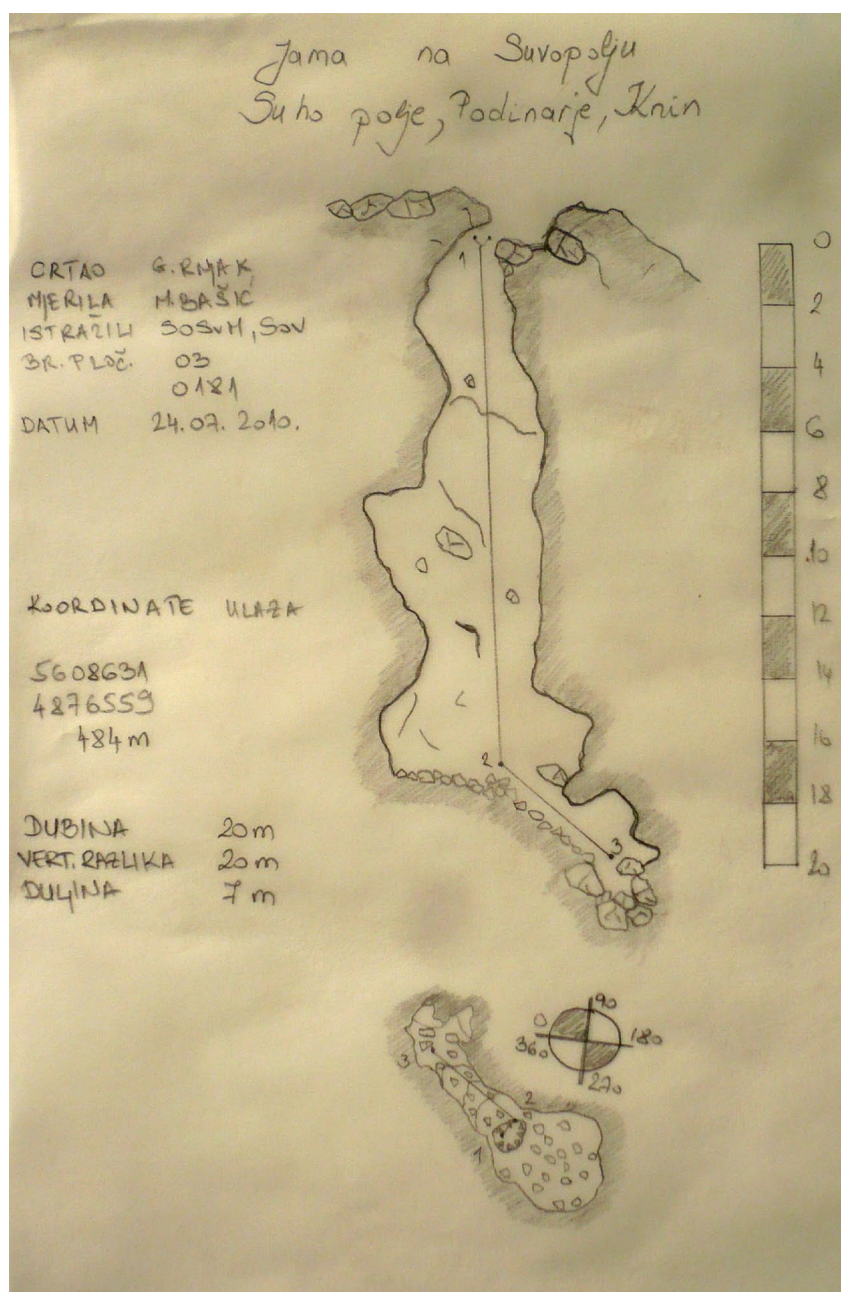 Jama na Suvopolju
Suho polje, Podinarje, Knin
CRTAO G. RNJAK
MJERILA M. BAŠIĆ
ISTRAŽILI SOSVM, SOV
BR. PLOČ. 03
0181
DATUM 24.07.2010.
KOORDINATE ULAZA
5608631
4876559
484 m
DUBINA 20 m
VERT. RAZLIKA 20 m
DULJINA 7 m
1
2
3
0
2
4
6
8
10
12
14
16
18
20
0
90
360
180
270
3
2
1